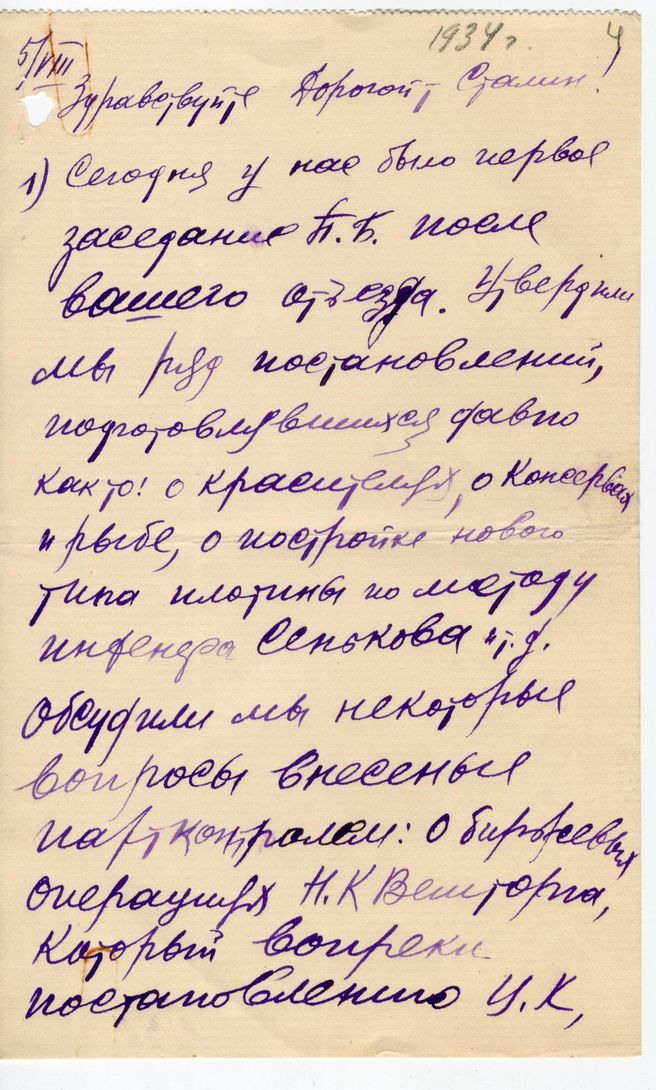 1934 г.
4
5/VIII
Здравствуйте Дорогой Сталин!
1) Сегодня у нас было первое
заседание П.Б. после
вашего отъезда. Утвердили
мы ряд постановлений,
подготовлявшихся давно
как то: о красителях, о консервах
и рыбе, о постройке нового
типа плотины по методу
инженера Сенькова и т.д.
Обсудили мы некоторые
вопросы внесеные
партконтролем: о биржевых
операциях Н.К Вешторга,
который вопреки
постановлению Ц.К,